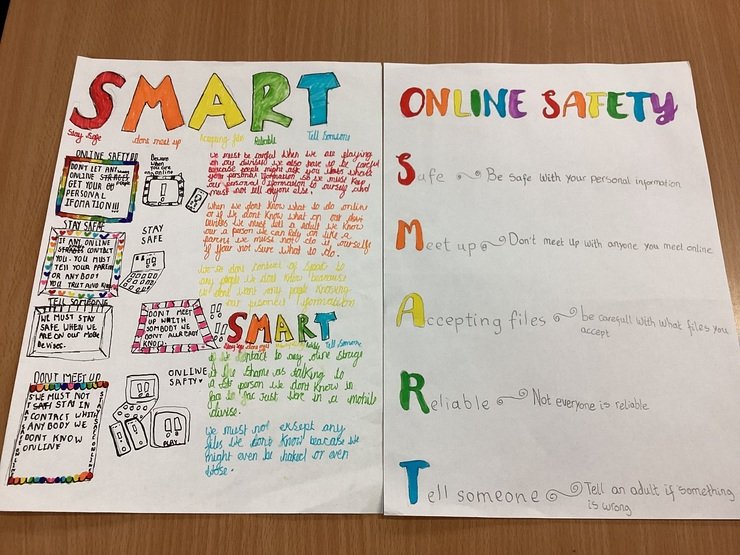 SMART
Stay Safe
dont meet up
Accepting files
Reliable
Tell Someone
ONLINE SAFTY
DON'T LET ANY
ONLINE
GET YOUR
PERSONAL
IFOMATION!!!
Beware
when
you are
online
STAY SAFAE
IF ANY ONLINE
CONTACT
YOU. YOU MUST
TELL YOUR PAREN
OR ANY BODY
YOU TRUST AND
STAY
SAFE
TELL SOMEONG
WE MUST STAY
SAFE WHEN WE
ARE ON OUR MOBLE
DEVISES.
DON'T MEET
UP WHITH
SOMBODY WE
DON'T ALLREADY
KNOW.
DON'T MEET UP
WE MUST NOT
STAY IN
CONTACT WHITH
ANY BODY WE
DONT KNOW
ONLINE
STAY SAFE ONLINE
STAY SAFE ONLINE
ONLINE
SAFTY
PLAY
we must be carefull when we are playing
on our devises we also have to be careful
because people might ask you about
your personal iformation so we must keep
our personal iformation to ourselfs and
must not tell anyone else.
when we dont know what to do online
or if we dont know what on our
devises we must tell a adult we know
our a person we can rely on like a
parens we must not do it ourself
if your not sure what to do.
we dont contact or speak to
any people we dont know because
we dont want any people knowing
our personel iformation
SMART
Tell Someone
if we contact to any online strangs
is the shame as talking to
a person we dont know in
just in a mobile
divise.
we must not exsept any
files we dont know because we
might even be haked or even
worse.
ONLINE SAFETY
Safe Be safe with your personal information
Meet up Don't meet up with anyone you meet online
Accepting files be carefull with what files you
accept
Reliable Not everyone is reliable
Tell someone Tell an adult if something
is wrong